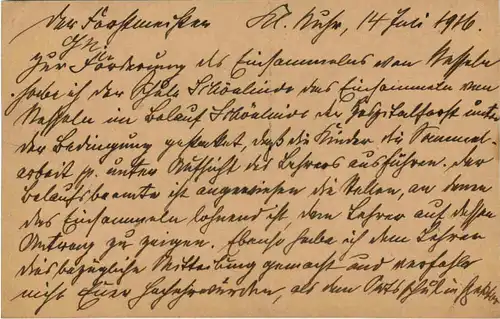 Der Forstmeister Kl. Nuhr, 14 Juli 1916.
Zur Förderung des Einsammelns von Nesseln
habe ich der Schule Schönlinde das Einsammeln von
Nesseln im Belauf Schönlinde der Hospitalforst unter
der Bedingung gestattet, daß die Kinder die Sammel-
arbeit p. unter Aufsicht des Lehrers ausführen. Der
Belaufsbeamte ist angewiesen die Stellen, an denen
das Einsammeln lohnend ist, dem Lehrer auf dessen
Antrag zu zeigen. Ebenso habe ich dem Lehrer
diesbezügliche Mitteilung gemacht und verfehle
nicht Euer Hochehrwürden, als dem Ortsschulinspektor